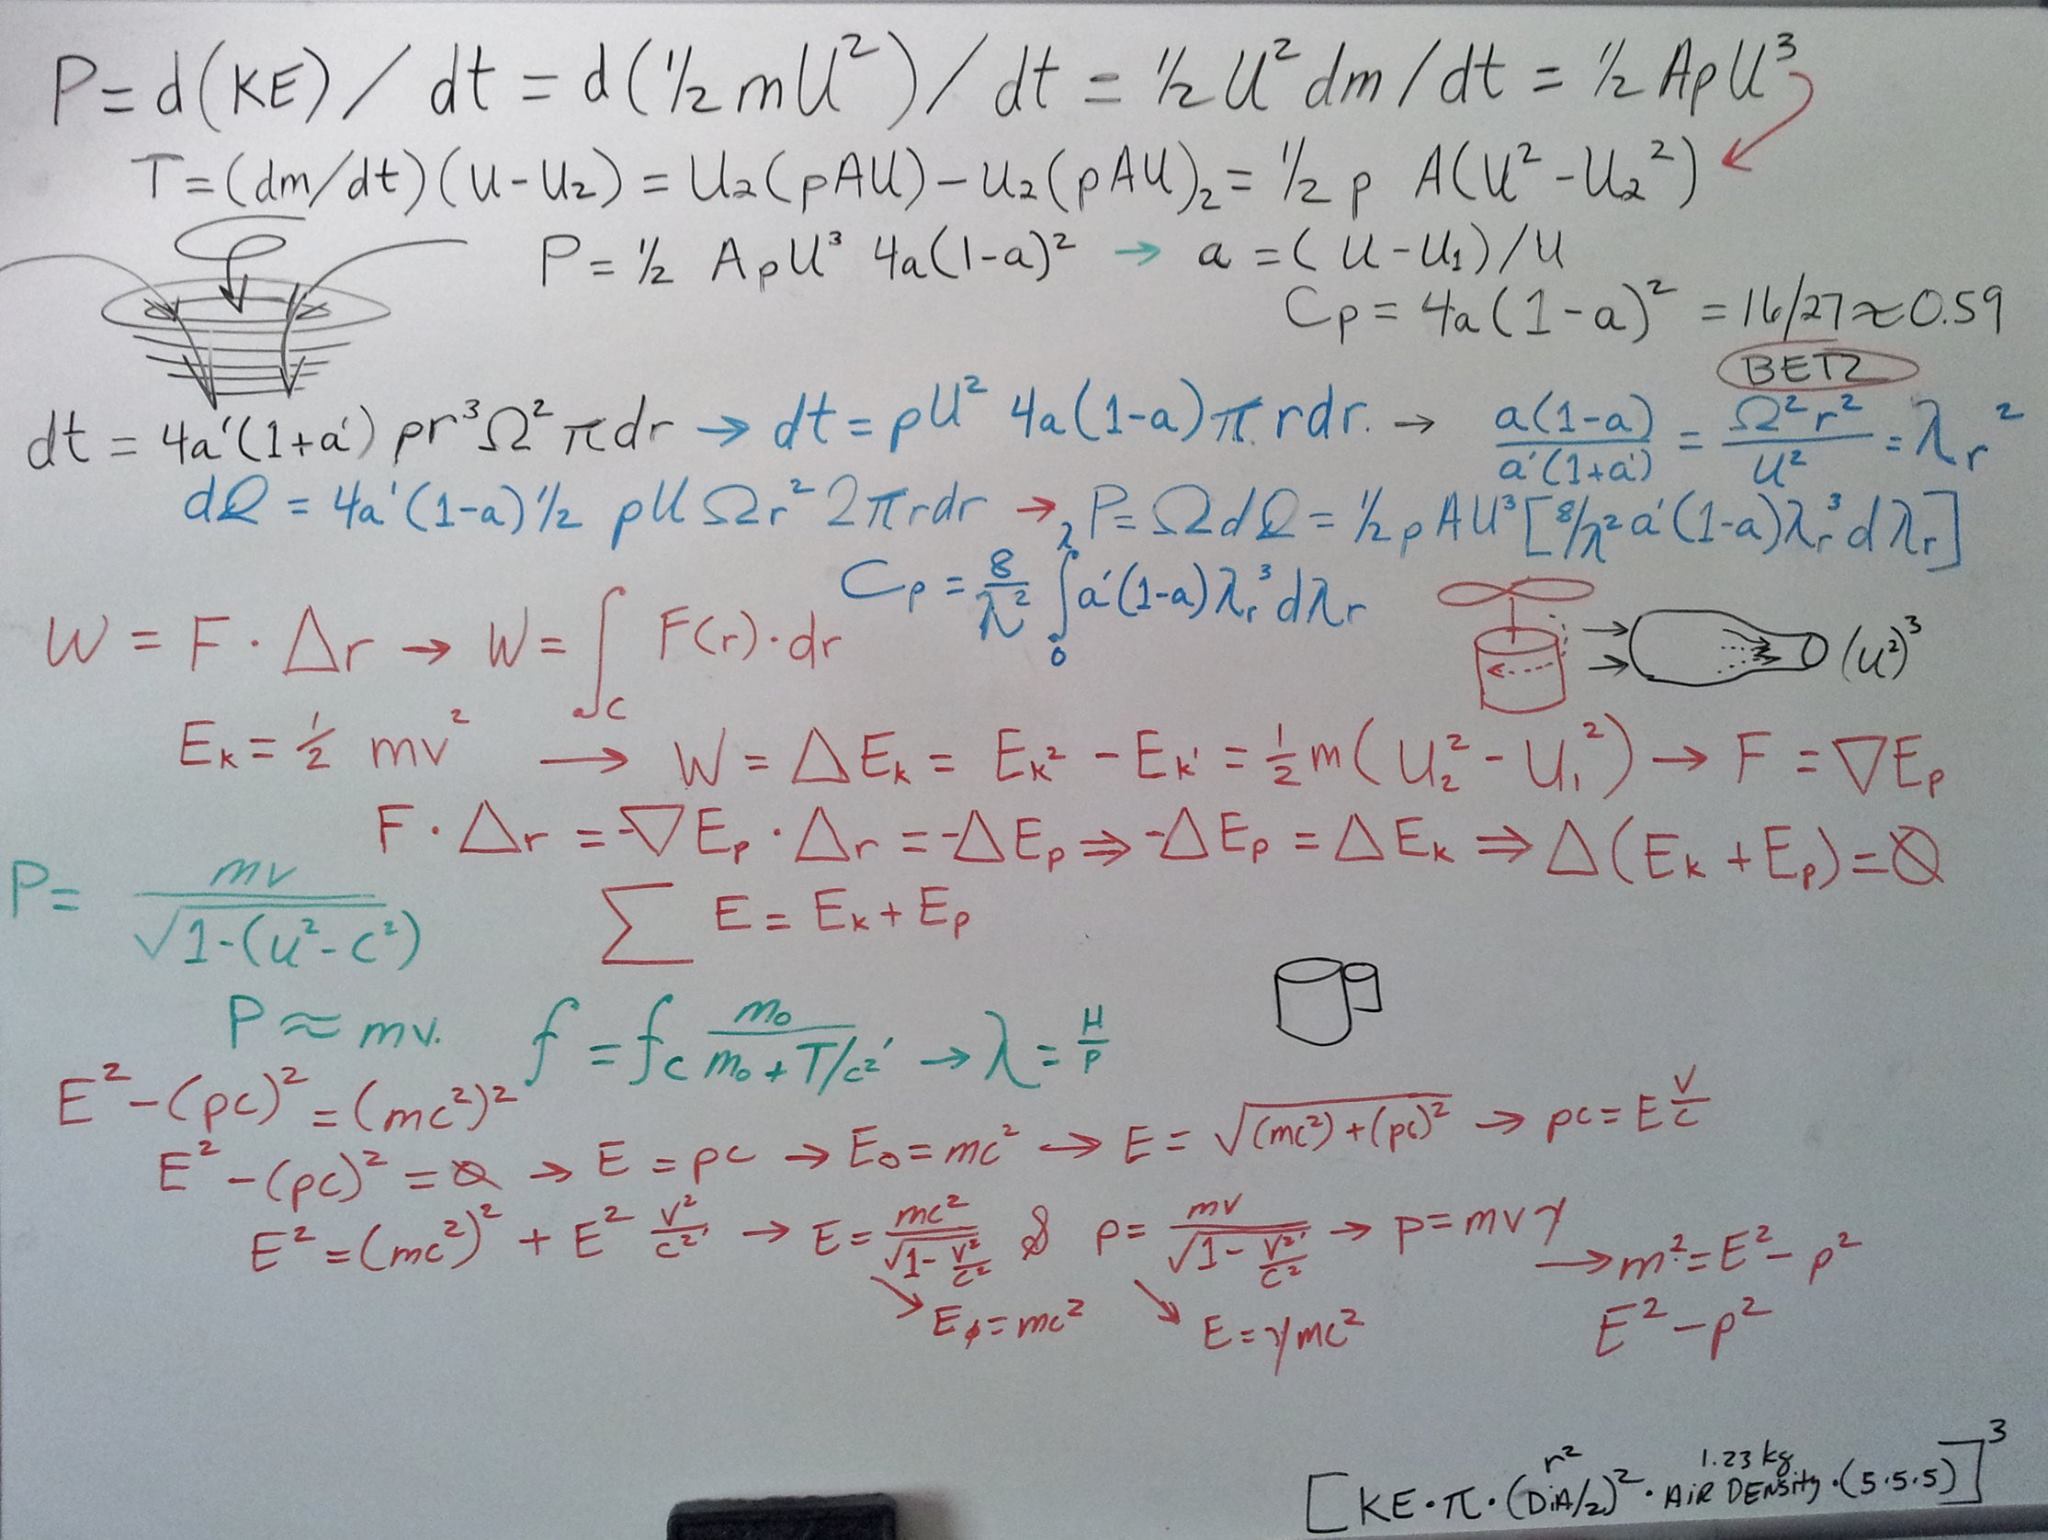 P = d(KE) / dt = d(½ mU²) / dt = ½ U² dm/dt = ½ AρU³
T = (dm/dt)(U-U₂) = U₂(ρAU) - U₂(ρAU)₂ = ½ ρ A(U² - U₂²)
P = ½ AρU³ 4a(1-a)² → a = (U-U₁)/U
Cp = 4a(1-a)² = 16/27 ≈ 0.59
BETZ
dt = 4a'(1+a') ρr³Ω² π dr → dt = ρU² 4a(1-a) π rdr. → a(1-a)/a'(1+a') = Ω²r²/U² = λr²
dQ = 4a'(1-a) ½ ρU Ωr² 2πrdr → P = ΩdQ = ½ ρAU³[8/λ² a'(1-a)λr³ dλr]
Cp = 8/λ² ∫₀^λ a'(1-a)λr³ dλr
W = F · Δr → W = ∫c F(r)·dr
(U²)³
Eₖ = ½ mv² → W = ΔEₖ = Eₖ² - Eₖ' = ½ m(U₂² - U₁²) → F = ∇Ep
F · Δr = -∇Ep · Δr = -ΔEp ⇒ -ΔEp = ΔEₖ ⇒ Δ(Eₖ + Ep) = 0
P = mv/√1-(u²-c²)
∑ E = Eₖ + Ep
P ≈ mv. f = fc m₀/m₀+T/c² → λ = H/P
E² - (pc)² = (mc²)²
E² - (pc)² = 0 → E = pc → E₀ = mc² → E = √(mc²)+(pc)² → pc = E v/c
E² = (mc²)² + E² v²/c² → E = mc²/√1-v²/c² & p = mv/√1-v²/c² → p = mvγ
→ m² = E² - p²
E₀ = mc² E = γmc² E² - p²
r² 1.23 kg
[KE · π · (DiA/2)² · AiR DENSity · (5·5·5)]³